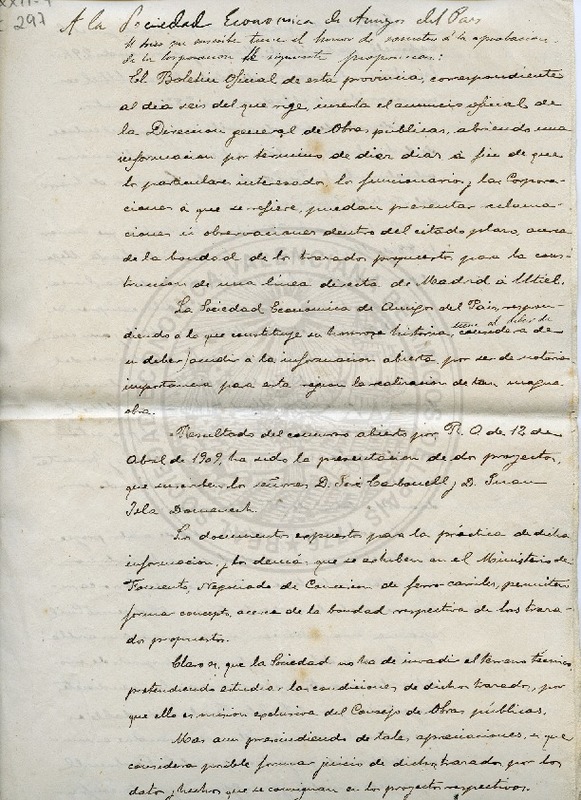 XXII-4
297
A la Sociedad Economica de Amigos del Pais
El socio que suscribe tiene el honor de someter á la aprobacion
de la Corporacion la siguiente proposicion:
El Boletin Oficial de esta provincia, correspondiente
al dia seis del que rige, inserta el anuncio oficial de
la Direccion general de Obras públicas, abriendo una
informacion por termino de diez dias á fin de que
los particulares interesados, los funcionarios y las Corpora-
ciones á que se refiere, puedan presentar reclama-
ciones ú observaciones dentro del citado plazo, acerca
de la bondad de los trazados propuestos para la cons-
truccion de una línea directa de Madrid á Utiel.
La Sociedad Económica de Amigos del Pais, respon-
diendo á lo que constituye su honrosa historia, considera de
su deber acudir á la informacion abierta, por ser de notoria
importancia para esta region la realizacion de tan magna
obra.
Resultado del concurso abierto por R. O de 12 de
Abril de 1909, ha sido la presentacion de dos proyectos,
que suscriben los señores D. José Carbonell y D. Juan
Isla Domenech.
Los documentos expuestos para la práctica de dicha
informacion y los demás que se exhiben en el Ministerio de
Fomento, Negociado de Concesion de ferro-carriles, permiten
formar concepto, acerca de la bondad respectiva de los traza-
dos propuestos.
Claro es, que la Sociedad no ha de invadir el terreno técnico
pretendiendo estudiar las condiciones de dichos trazados, por
que ello es mision exclusiva del Consejo de Obras públicas.
Mas aun prescindiendo de tales apreciaciones, es que
considera posible formar juicio de dichos trazados por los
datos y hechos que se consignan en los proyectos respectivos.